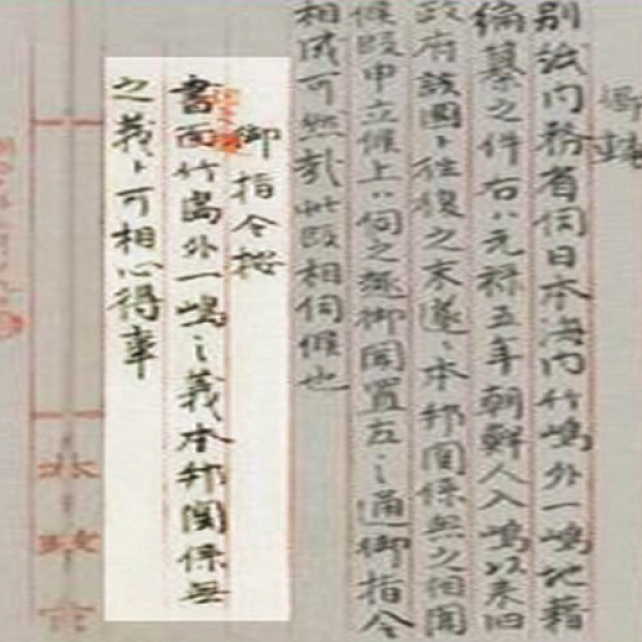 別紙内務省伺日本海内竹嶋外一嶋地籍
編纂之件右ハ元禄五年朝鮮人入嶋以来旧
政府該国ト往復之末遂ニ本邦関係無之相聞
候段申立候上ハ伺之趣御聞置左之通御指令
相成可然哉此段相伺候也
御指令按
伺之趣
書面竹島外一嶋之義本邦関係無
之義ト可相心得事
太政官